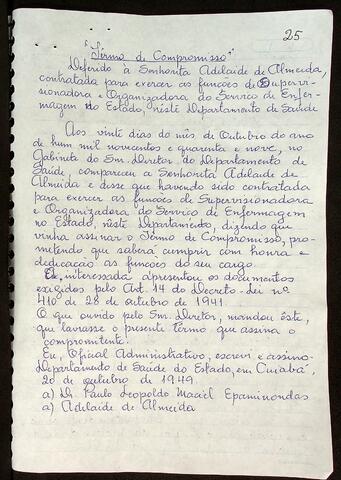 25
"Têrmo de Compromisso"
Deferido à Senhorita Adelaide de Almeida,
contratada para exercer as funcões de Supervi-
sionadora e Organizadora do Servico de Enfer-
magem no Estado, nêste Departamento de Saúde
Aos vinte dias do mês de Outubro do ano
de hum mil novecentos e quarenta e nove, no
Gabinete do Snr. Diretor do Departamento de
Saúde, compareceu a Senhorita Adelaide de
Almeida e disse que havendo sido contratada
para exercer as funcões de Supervisionadora
e Organizadora do Servico de Enfermagem
no Estado, nêste Departamento, dizendo que
vinha assinar o Têrmo de Compromisso, pro-
metendo que saberá cumprir com honra e
dedicacão as funcões do seu cargo.
interessada apresentou os documentos
exigidos pelo Art. 14 do Decreto-Lei nº
410 de 28 de outubro de 1941.
O que ouvido pelo Snr. Diretor, mandou êste,
que lavrasse o presente termo que assina o
compromitente.
Eu, Oficial Administrativo, escrevi e assino-
Departamento de Saúde do Estado, em Cuiabá,
20 de outubro de 1949.
a) Dr. Paulo Leopoldo Maciel Epaminondas
a) Adelaide de Almeida